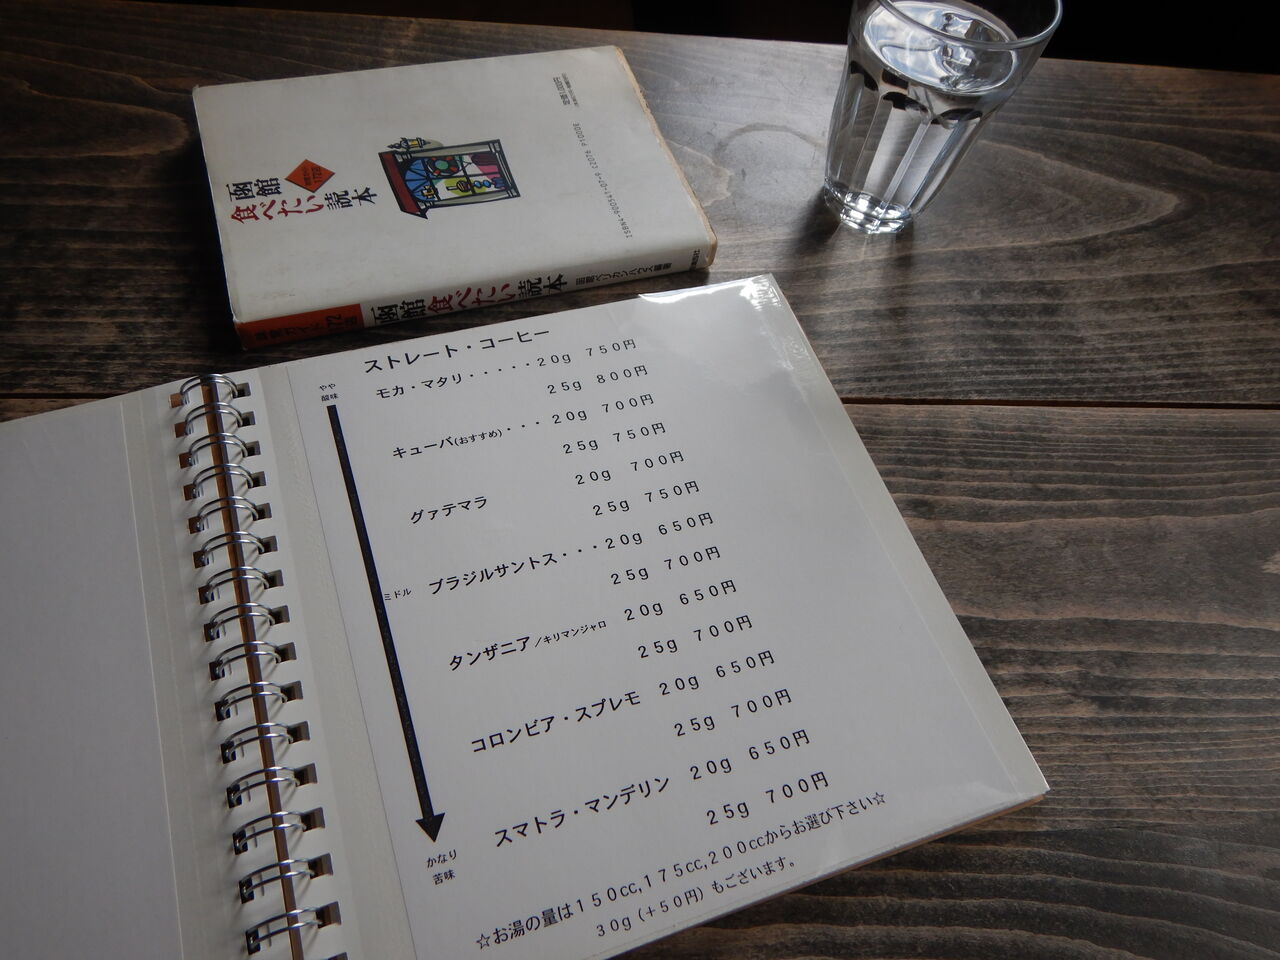 函館
食べたい読本
ISBN4-900541-07-9 C2076 P1000E
函館食べたい読本
ストレート・コーヒー
やや
酸味
モカ・マタリ・・・・・20g 750円
25g 800円
キューバ(おすすめ)・・・20g 700円
25g 750円
グァテマラ 20g 700円
25g 750円
ミドル
ブラジルサントス・・・20g 650円
25g 700円
タンザニア/キリマンジャロ 20g 650円
25g 700円
コロンビア・スプレモ 20g 650円
25g 700円
スマトラ・マンデリン 20g 650円
25g 700円
かなり
苦味
☆お湯の量は150cc,175cc,200ccからお選び下さい☆
30g(+50円)もございます。